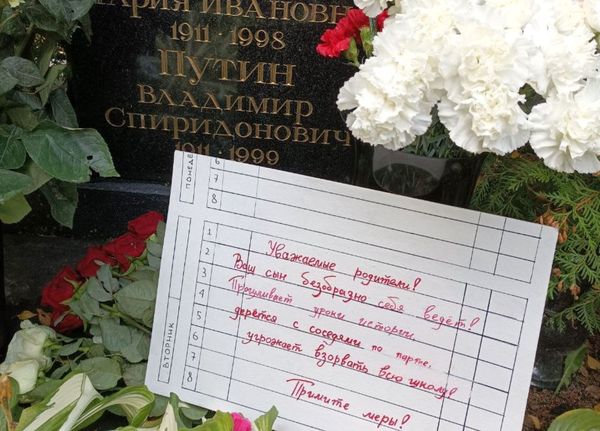 АРИЯ ИВАНОВН
1911-1998
ПУТИН
ВЛАДИМИР
СПИРИДОНОВИЧ
1911-1999
ПОНЕДЕ
6
7
8
ВТОРНИК
1
2
3
4
5
6
7
8
Уважаемые родители!
Ваш сын безобразно себя ведёт!
Прогуливает уроки истории,
дерётся с соседями по парте,
угрожает взорвать всю школу!
Примите меры!